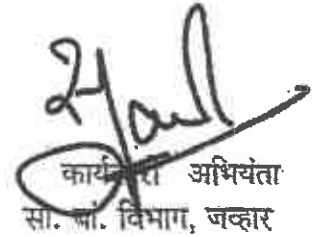 कार्यकारी अभियंता
सा. बां. विभाग, जव्हार